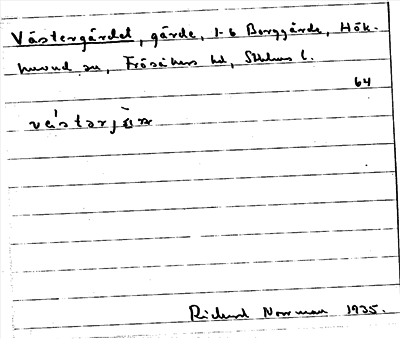 Västergärdet, gärde, 1-6 Borggärde, Hök-
huvud sn, Frösåkers hd, Sthlms l.
64
Richard Norrman 1935.